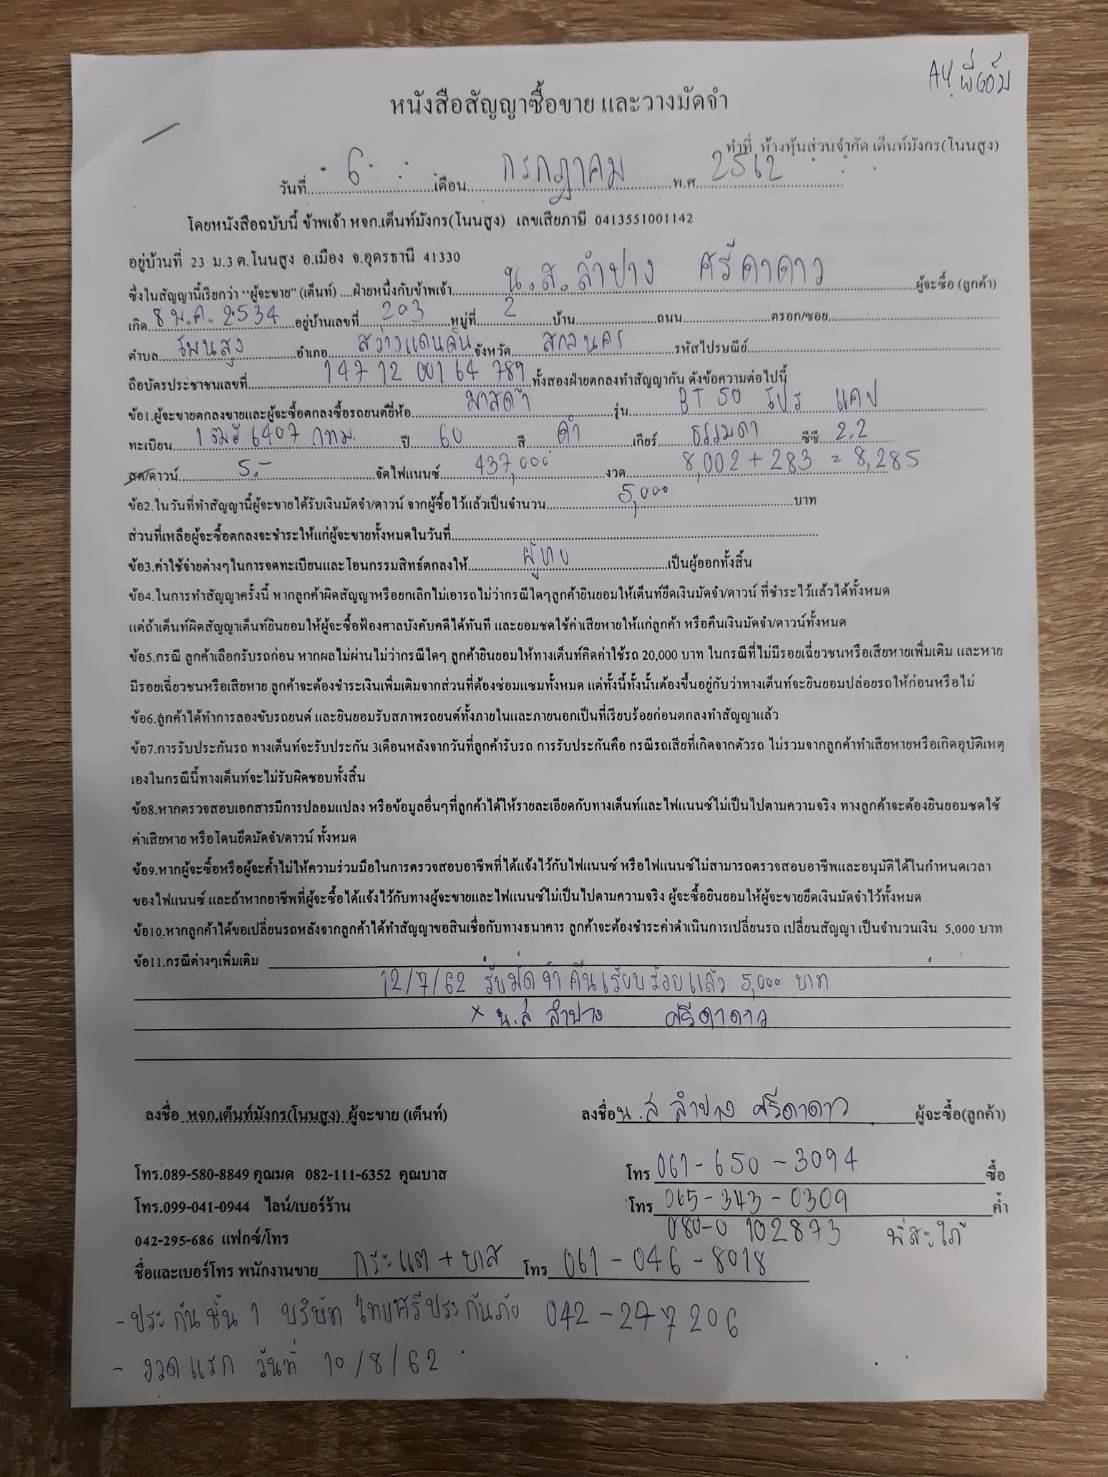 AY พี่
หนังสือสัญญาซื้อขาย และวางมัดจำ
ทำที่ ห้างหุ้นส่วนจำกัด เต็นท์มังกร(โนนสูง)
วันที่ 6 เดือน กรกฎาคม พ.ศ. 2562
โดยหนังสือฉบับนี้ ข้าพเจ้า หจก.เต็นท์มังกร(โนนสูง) เลขเสียภาษี 0413551001142
อยู่บ้านที่ 23 ม.3 ต.โนนสูง อ.เมือง จ.อุดรธานี 41330
ซึ่งในสัญญานี้เรียกว่า "ผู้จะขาย" (เต็นท์) ....ฝ่ายหนึ่งกับข้าพเจ้า น.ส. ลำปาง ศรีดาดาว ผู้จะซื้อ (ลูกค้า)
เกิด 8 พ.ค. 2534 อยู่บ้านเลขที่ 203 หมู่ที่ 2 บ้าน ถนน ตรอก/ซอย
ตำบล โพนสูง อำเภอ สว่างแดนดิน จังหวัด สกลนคร รหัสไปรษณีย์
ถือบัตรประชาชนเลขที่ 14712 00164 789 ทั้งสองฝ่ายตกลงทำสัญญากัน ดังข้อความต่อไปนี้
ข้อ1.ผู้จะขายตกลงขายและผู้จะซื้อตกลงซื้อรถยนต์ยี่ห้อ มาสด้า รุ่น BT 50 โปร แคป
ทะเบียน 6407 กทม. ปี 60 สี ดำ เกียร์ ธรรมดา ซีซี 2.2
สด/ดาวน์ 5.- จัดไฟแนนซ์ 437,000 งวด 8,002 + 283 = 8,285
ข้อ2.ในวันที่ทำสัญญานี้ผู้จะขายได้รับเงินมัดจำ/ดาวน์ จากผู้ซื้อไว้แล้วเป็นจำนวน 5,000 บาท
ส่วนที่เหลือผู้จะซื้อตกลงจะชำระให้แก่ผู้จะขายทั้งหมดในวันที่
ข้อ3.ค่าใช้จ่ายต่างๆในการจดทะเบียนและโอนกรรมสิทธ์ตกลงให้ เป็นผู้ออกทั้งสิ้น
ข้อ4.ในการทำสัญญาครั้งนี้ หากลูกค้าผิดสัญญาหรือยกเลิกไม่เอารถไม่ว่ากรณีใดๆลูกค้ายินยอมให้เต็นท์ยึดเงินมัดจำ/ดาวน์ ที่ชำระไว้แล้วได้ทั้งหมด
แต่ถ้าเต็นท์ผิดสัญญาเต็นท์ยินยอมให้ผู้จะซื้อฟ้องศาลบังคับคดีได้ทันที และยอมชดใช้ค่าเสียหายให้แก่ลูกค้า หรือคืนเงินมัดจำ/ดาวน์ทั้งหมด
ข้อ5.กรณี ลูกค้าเลือกรับรถก่อน หากผลไม่ผ่านไม่ว่ากรณีใดๆ ลูกค้ายินยอมให้ทางเต็นท์คิดค่าใช้รถ 20,000 บาท ในกรณีที่ไม่มีรอยเฉี่ยวชนหรือเสียหายเพิ่มเติม และหาย
มีรอยเฉี่ยวชนหรือเสียหาย ลูกค้าจะต้องชำระเงินเพิ่มเติมจากส่วนที่ต้องซ่อมแซมทั้งหมด แต่ทั้งนี้ทั้งนั้นต้องขึ้นอยู่กับว่าทางเต็นท์จะยินยอมปล่อยรถให้ก่อนหรือไม่
ข้อ6.ลูกค้าได้ทำการลองขับรถยนต์ และยินยอมรับสภาพรถยนต์ทั้งภายในและภายนอกเป็นที่เรียบร้อยก่อนตกลงทำสัญญาแล้ว
ข้อ7.การรับประกันรถ ทางเต็นท์จะรับประกัน 3เดือนหลังจากวันที่ลูกค้ารับรถ การรับประกันคือ กรณีรถเสียที่เกิดจากตัวรถ ไม่รวมจากลูกค้าทำเสียหายหรือเกิดอุบัติเหตุ
เองในกรณีนี้ทางเต็นท์จะไม่รับผิดชอบทั้งสิ้น
ข้อ8.หากตรวจสอบเอกสารมีการปลอมแปลง หรือข้อมูลอื่นๆที่ลูกค้าได้ให้รายละเอียดกับทางเต็นท์และไฟแนนซ์ไม่เป็นไปตามความจริง ทางลูกค้าจะต้องยินยอมชดใช้
ค่าเสียหาย หรือโดนยึดมัดจำ/ดาวน์ ทั้งหมด
ข้อ9.หากผู้จะซื้อหรือผู้จะค้ำไม่ให้ความร่วมมือในการตรวจสอบอาชีพที่ได้แจ้งไว้กับไฟแนนซ์ หรือไฟแนนซ์ไม่สามารถตรวจสอบอาชีพและอนุมัติได้ในกำหนดเวลา
ของไฟแนนซ์ และถ้าหากอาชีพที่ผู้จะซื้อได้แจ้งไว้กับทางผู้จะขายและไฟแนนซ์ไม่เป็นไปตามความจริง ผู้จะซื้อยินยอมให้ผู้จะขายยึดเงินมัดจำไว้ทั้งหมด
ข้อ10.หากลูกค้าได้ขอเปลี่ยนรถหลังจากลูกค้าได้ทำสัญญาขอสินเชื่อกับทางธนาคาร ลูกค้าจะต้องชำระค่าดำเนินการเปลี่ยนรถ เปลี่ยนสัญญา เป็นจำนวนเงิน 5,000 บาท
ข้อ11.กรณีต่างๆเพิ่มเติม
12/7/62 รับมัดจำ คืนเรียบร้อยแล้ว 5,000 บาท
x น.ส ลำปาง ศรีดาดาว
ลงชื่อ หจก.เต็นท์มังกร(โนนสูง) ผู้จะขาย (เต็นท์) ลงชื่อ น.ส ลำปาง ศรีดาดาว ผู้จะซื้อ(ลูกค้า)
โทร.089-580-8849 คุณมด 082-111-6352 คุณบาส โทร 061-650-3094 ซื้อ
โทร.099-041-0944 ไลน์/เบอร์ร้าน โทร 065-343-0309 ค้ำ
042-295-686 แฟกซ์/โทร 080-0 102873 พี่สะใภ้
ชื่อและเบอร์โทร พนักงานขาย กระแต + บาส โทร 061-046-8018
- ประกันชั้น 1 บริษัท ไทยศรีประกันภัย 042-247 206
- งวดแรก วันที่ 10/8/62